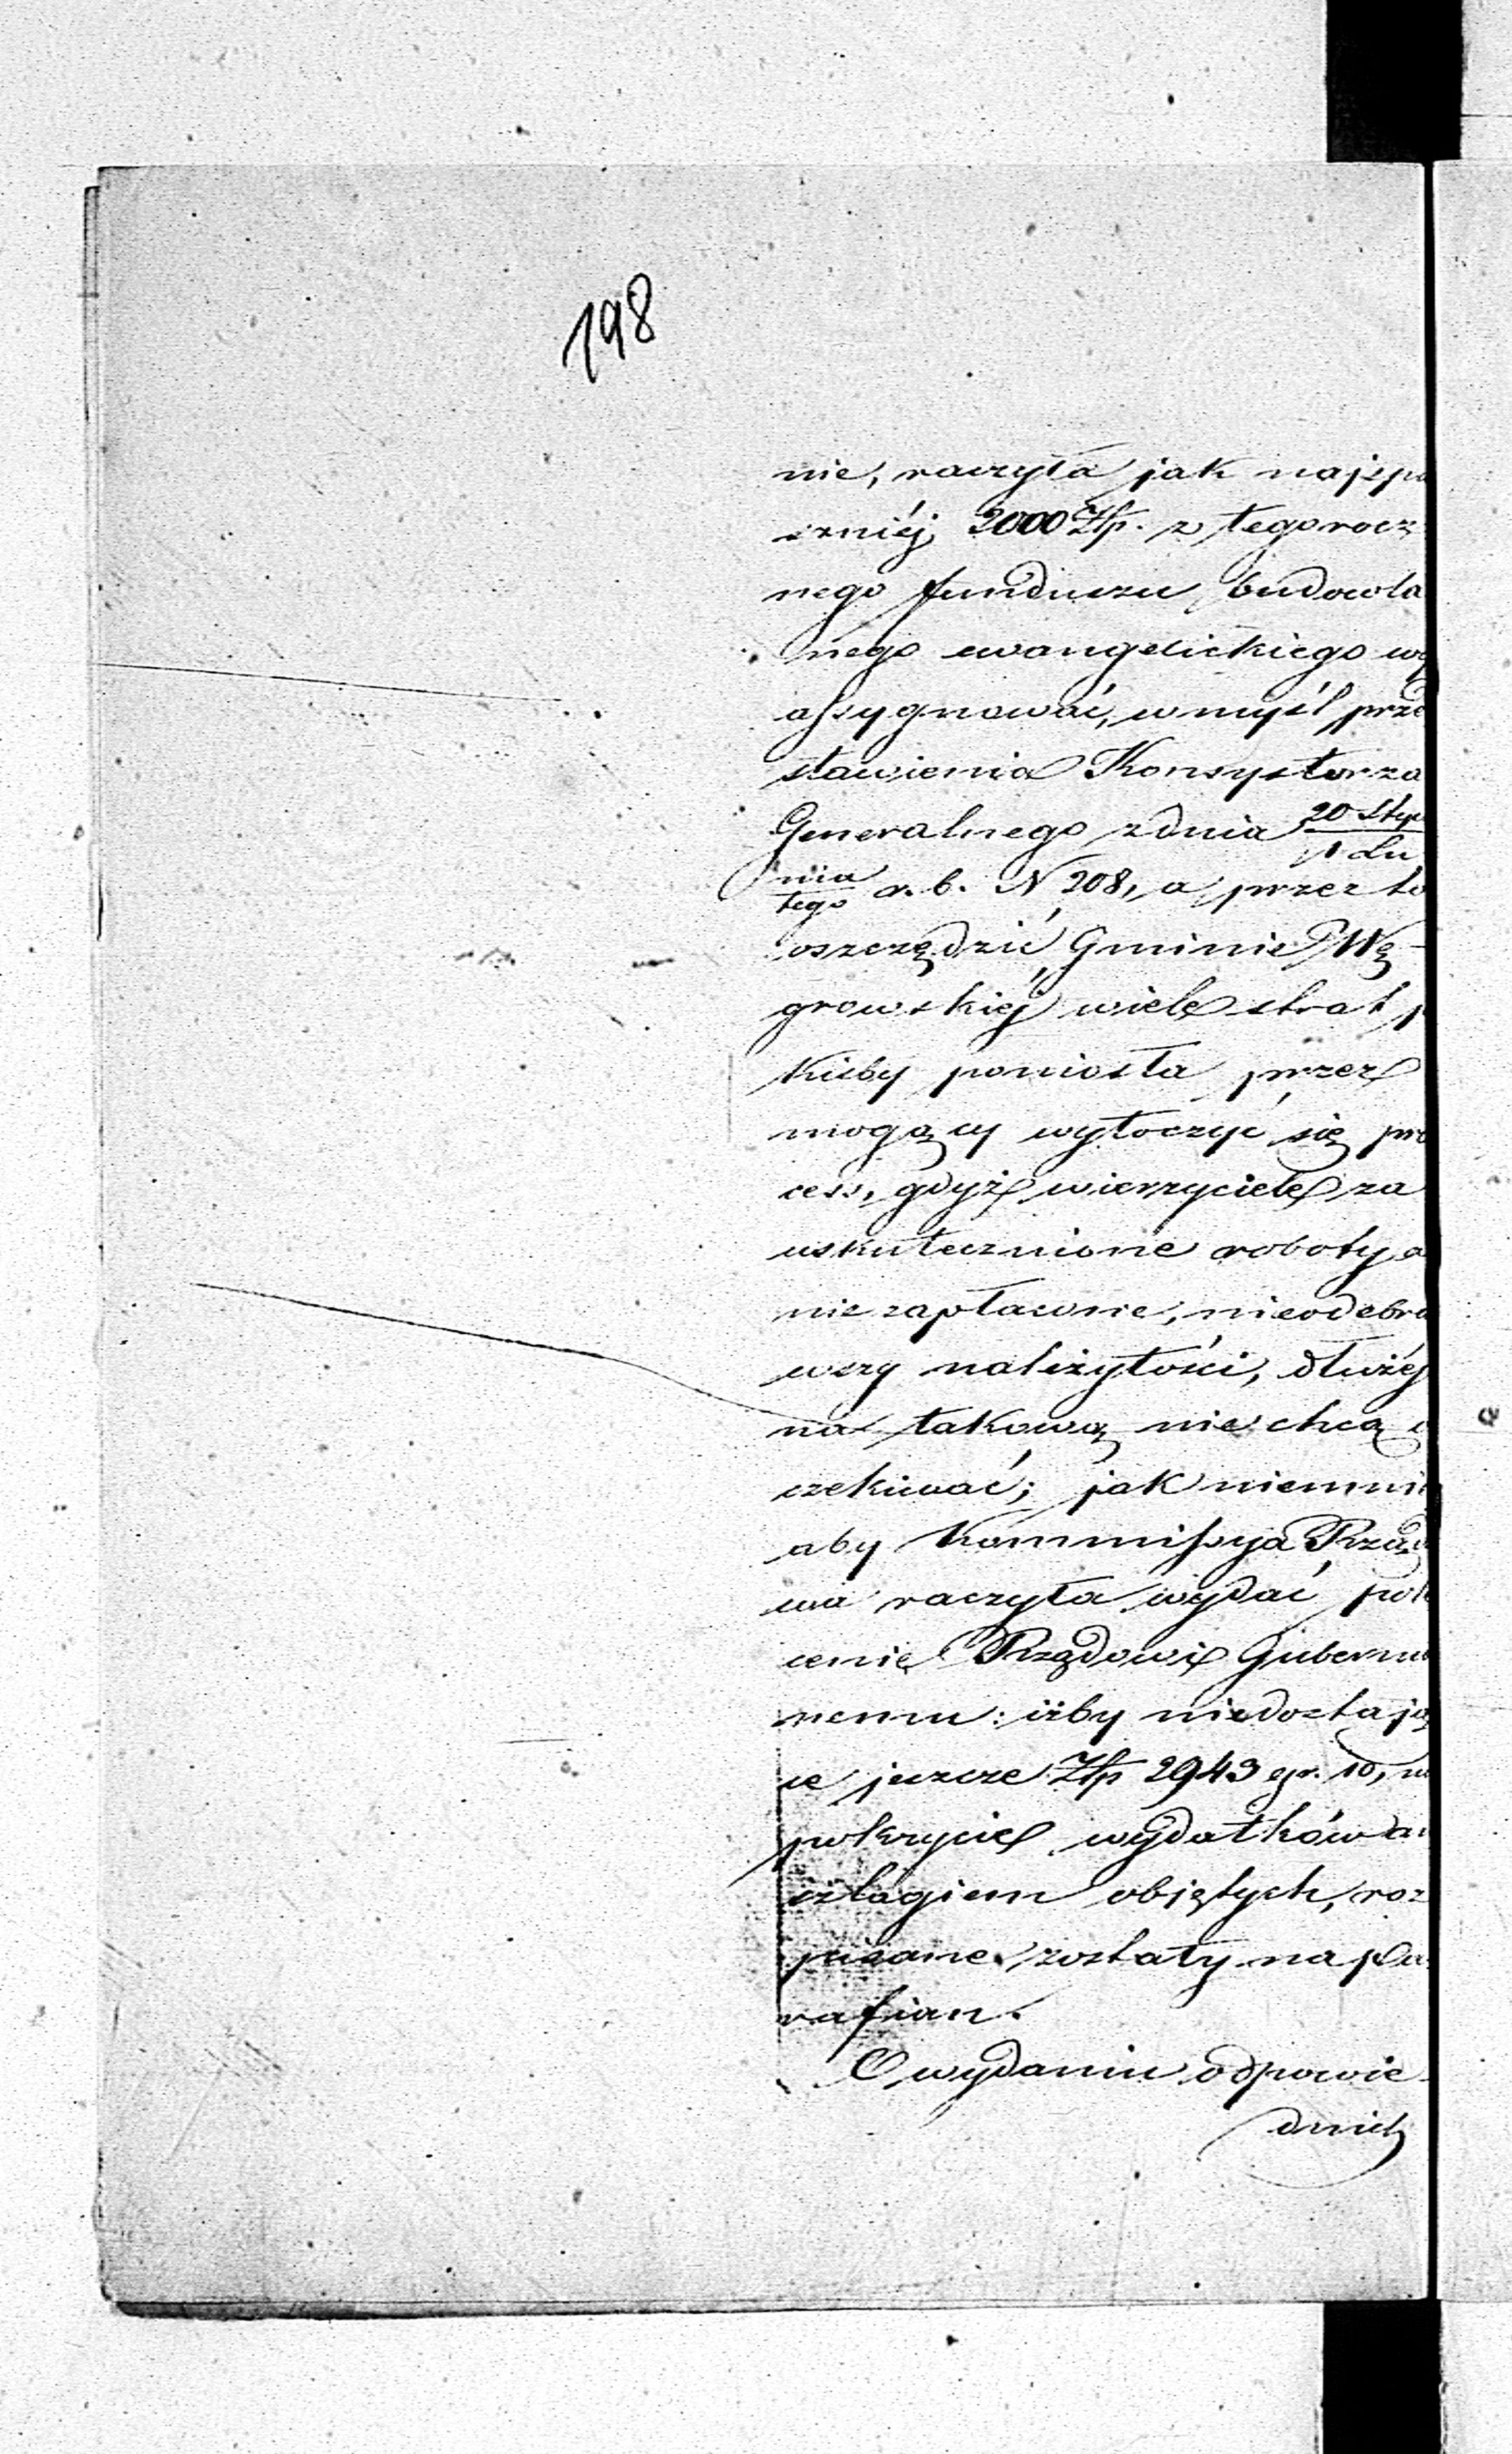 198
nie, raczyła jak najspo
czniéj 2000 Złp. z tegorocz
nego funduszu budowla
nego ewangelickiego wy
assygnować, w myśl prze
stawienia Konsystorza
Generalnego z dnia 20 Stycz
1 Lu
nia
tego r. b. N 208, a przez to
oszczędzić Gminie Wę-
growskiéj wiele strat j
kieby poniosła przez
mogący wytoczyć się pro
cess, gdyż wierzyciele za
uskutecznione roboty a
nie zapłacone, nieodebra
wszy należytości, dłużéj
na takową nie chcą o
czekiwać; jak niemnié
aby Kommissya Rząd
wa raczyła wydać pole
cenie Rządowi Gubernia
nemu: iżby niedostają
ce jeszcze Złp 2943 gr. 10, na
pokrycie wydatków an
szlagiem objętych, roz
pisane zostały na pa
rafian.
O wydaniu odpowie-
dnich